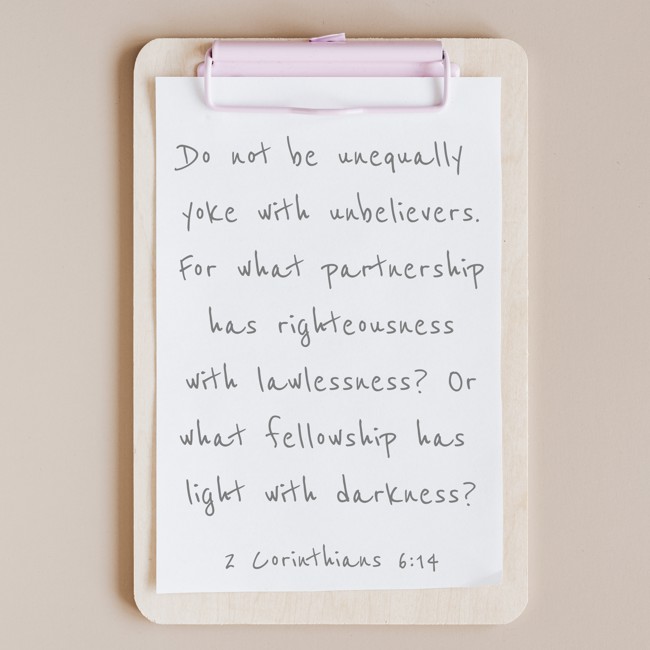 Do not be unequally
yoke with unbelievers.
For what partnership
has righteousness
with lawlessness? Or
what fellowship has
light with darkness?
2 Corinthians 6:14